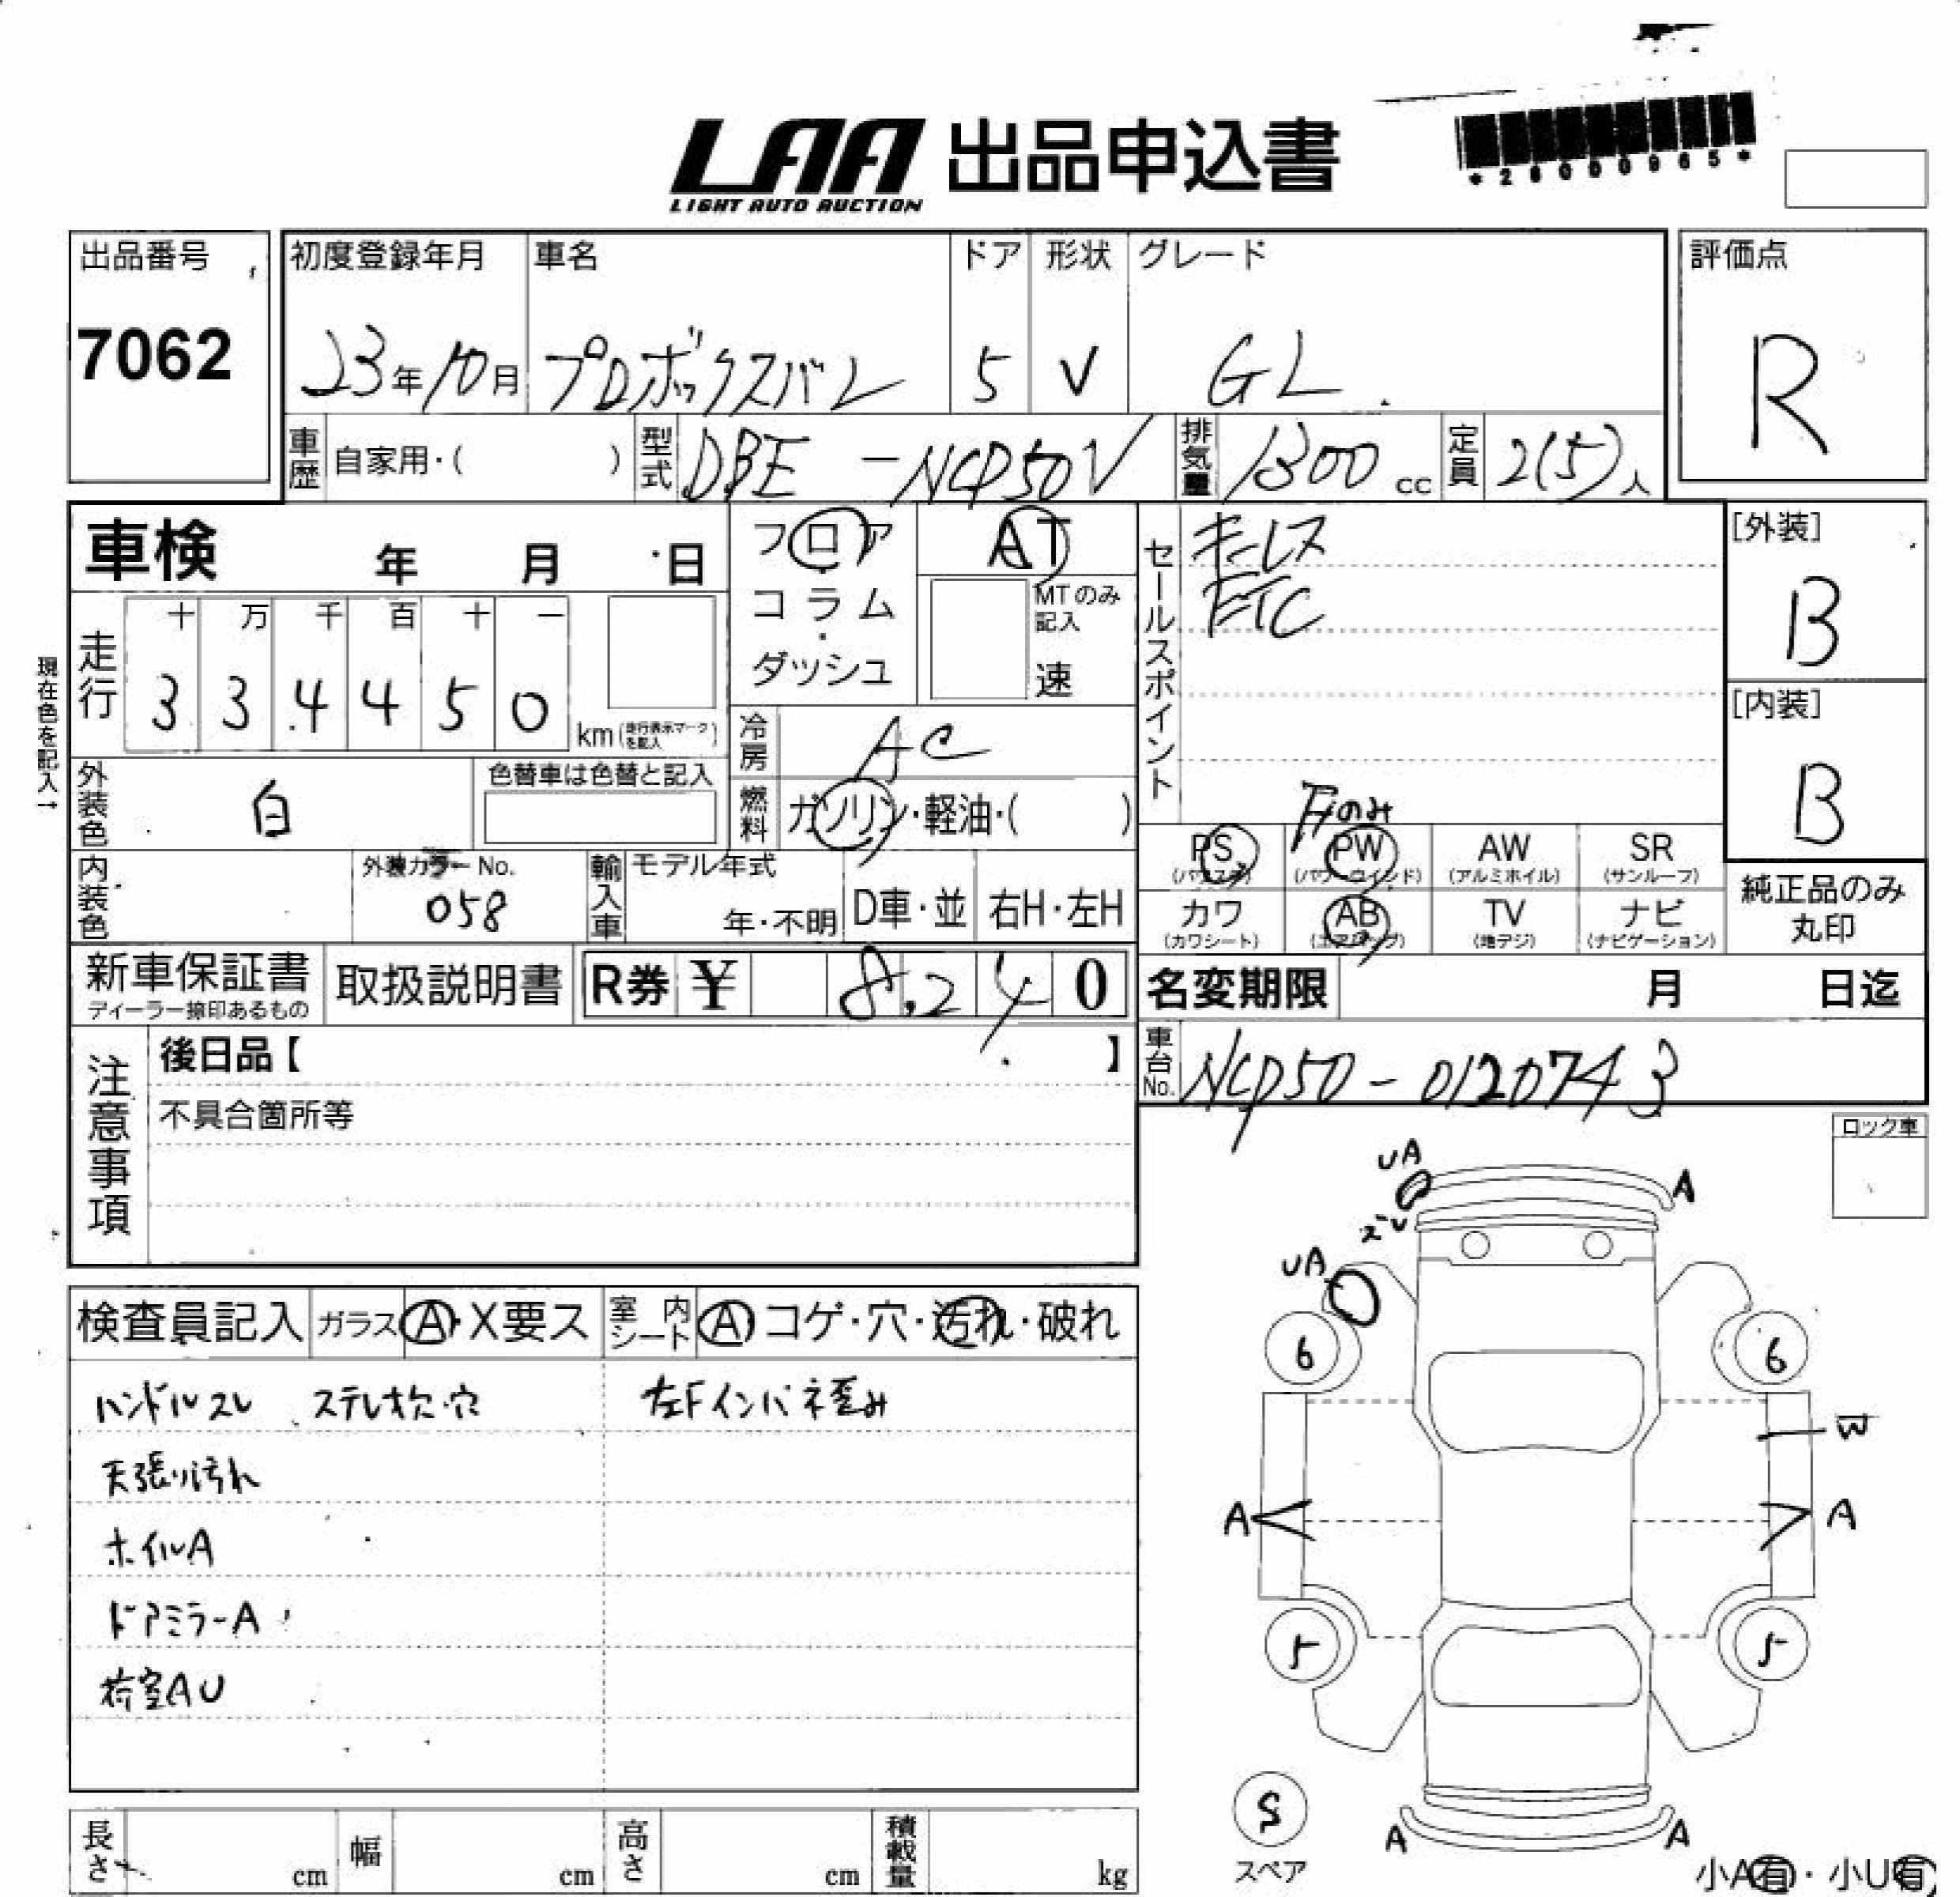 LAA 出品申込書
LIGHT AUTO AUCTION
*26000965*
出品番号
7062
初度登録年月 車名 ドア 形状 グレード
23年10月 プロボックスバン 5 V GL
評価点
R
車歴 自家用・( ) 型式 DBE-NCP50V 排気量 1300cc 定員 2(5)人
車検 年 月 日
フロア・コラム・ダッシュ
AT
MTのみ記入
速
セールスポイント
キーレス
ETC
[外装]
B
[内装]
B
現在色を記入→
走行 十 万 千 百 十 一
3 3 4 4 5 0 km(走行表示マークを記入)
冷房 AC
外装色 白 色替車は色替と記入
燃料 ガソリン・軽油・( )
Fのみ
PS(パワステ) PW(パワーウインド) AW(アルミホイル) SR(サンルーフ)
カワ(カワシート) AB(エアバッグ) TV(地デジ) ナビ(ナビゲーション)
純正品のみ丸印
内装色 外装カラーNo. 058
輸入車 モデル年式 年・不明 D車・並 右H・左H
新車保証書 ディーラー捺印あるもの 取扱説明書 R券 ¥ 8,240
名変期限 月 日迄
車台No. NCP50-0120743
注意事項
後日品【 】
不具合箇所等
ロック車
検査員記入 ガラス A・X要ス 室内シート A コゲ・穴・汚れ・破れ
ハンドルスレ ステレオ欠・穴 左Fインパネ歪み
天張り汚れ
ホイルA
ドアミラーA
荷室AU
UA
A
UA
6 6
W
A A
5 5
S
スペア
A A
長さ cm 幅 cm 高さ cm 積載量 kg
小A有・小U有